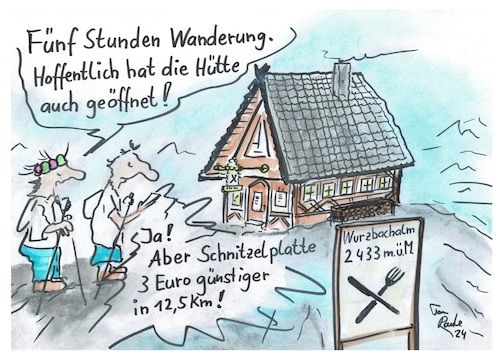 Fünf Stunden Wanderung.
Hoffentlich hat die Hütte
auch geöffnet!
Ja!
Aber Schnitzelplatte
3 Euro günstiger
in 12,5 Km!
Wurzbachalm
2 433 m.ü.M
24